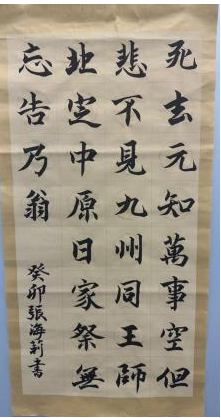 死去元知萬事空但
悲不見九州同王師
北定中原日家祭無
忘告乃翁
癸卯張海莉書